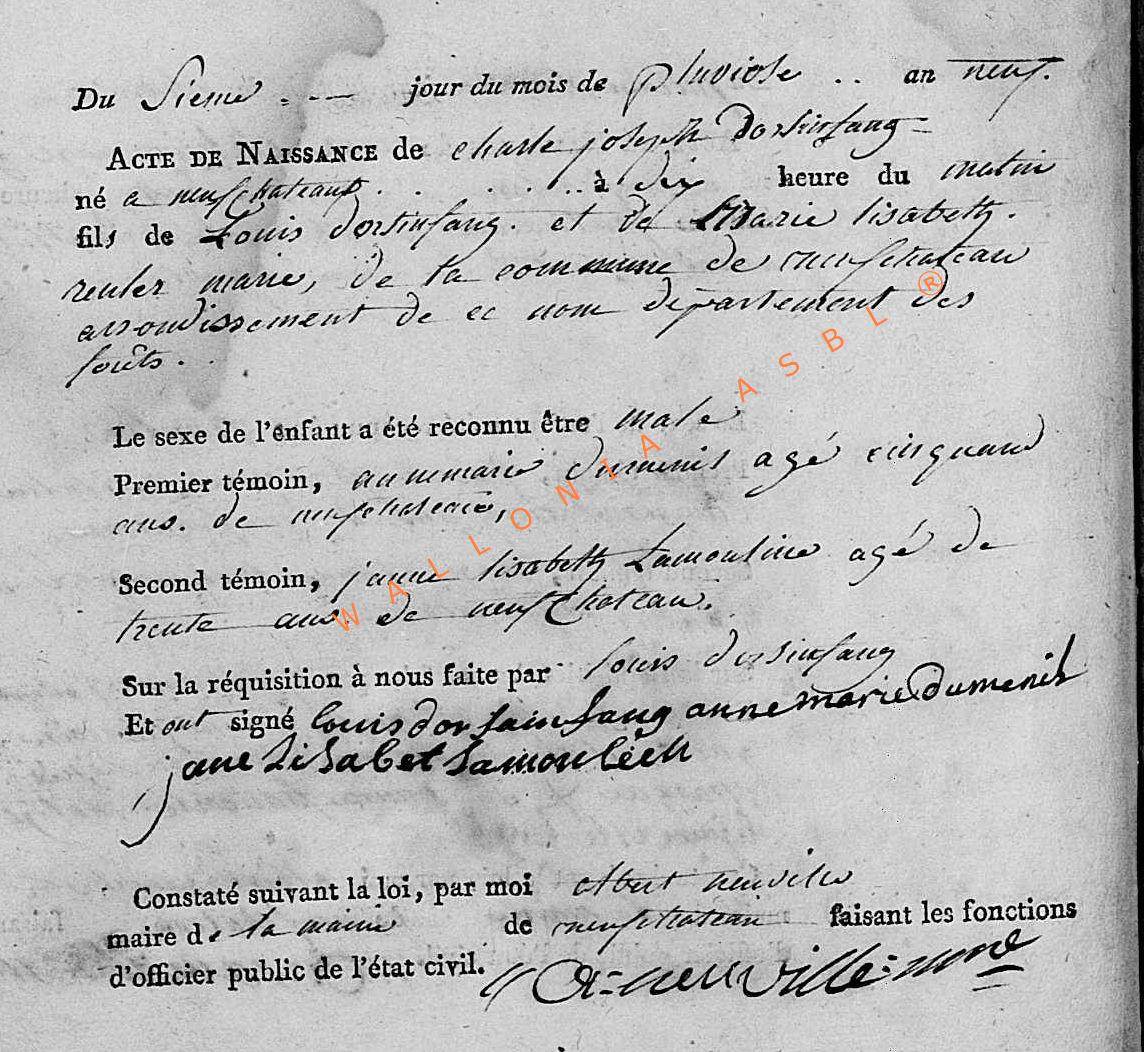 Du Sieme jour du mois de pluviose .. an neuf.
ACTE DE NAISSANCE de charle joseph dorsinfang
né a neufchateaux . . . . . . à dix heure du matin
fils de Louis dorsinfang. et de Marie lisabeth.
renler marie, de la commune de neufchateau
arrondissement de ce nom département des
forêts.
Le sexe de l'enfant a été reconnu être male
Premier témoin, annemarie dumenil agé cinquand
ans. de neufchateau,
Second témoin, janne lisabeth Lamouline agé de
trente ans de neufchateau.
Sur la réquisition à nous faite par louis dorsinfang
Et ont signé louis dorsainfang anne marie dumenil
jane Lisabet Lamouleen
Constaté suivant la loi, par moi albert neuville
maire de la mairie de neufchateau faisant les fonctions
d'officier public de l'état civil. A: neuville: mre
WALLONIA ASBL ®